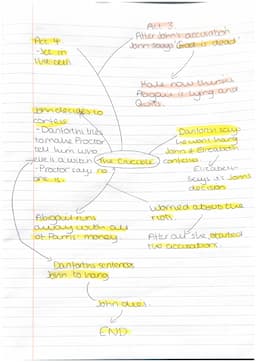 Act 3
After John's accusation
John says 'God is dead'
Hale now thinks
Abigail is lying and
Quits.
Act 4
- Set in
the cell
John decides to
confess
- Danforth tries
to make Proctor
tell him who
else is a witch
- Proctor says no
one is.
The Crucible
Danforth says
he won't hang
John if Elizabeth
confesses
Elizabeth
says its Johns
decision
Worried about the
riots.
After all she started
the accusations.
Abigail runs
away with all
of Parris' money.
Danforth sentences
John to hang
John dies.
END